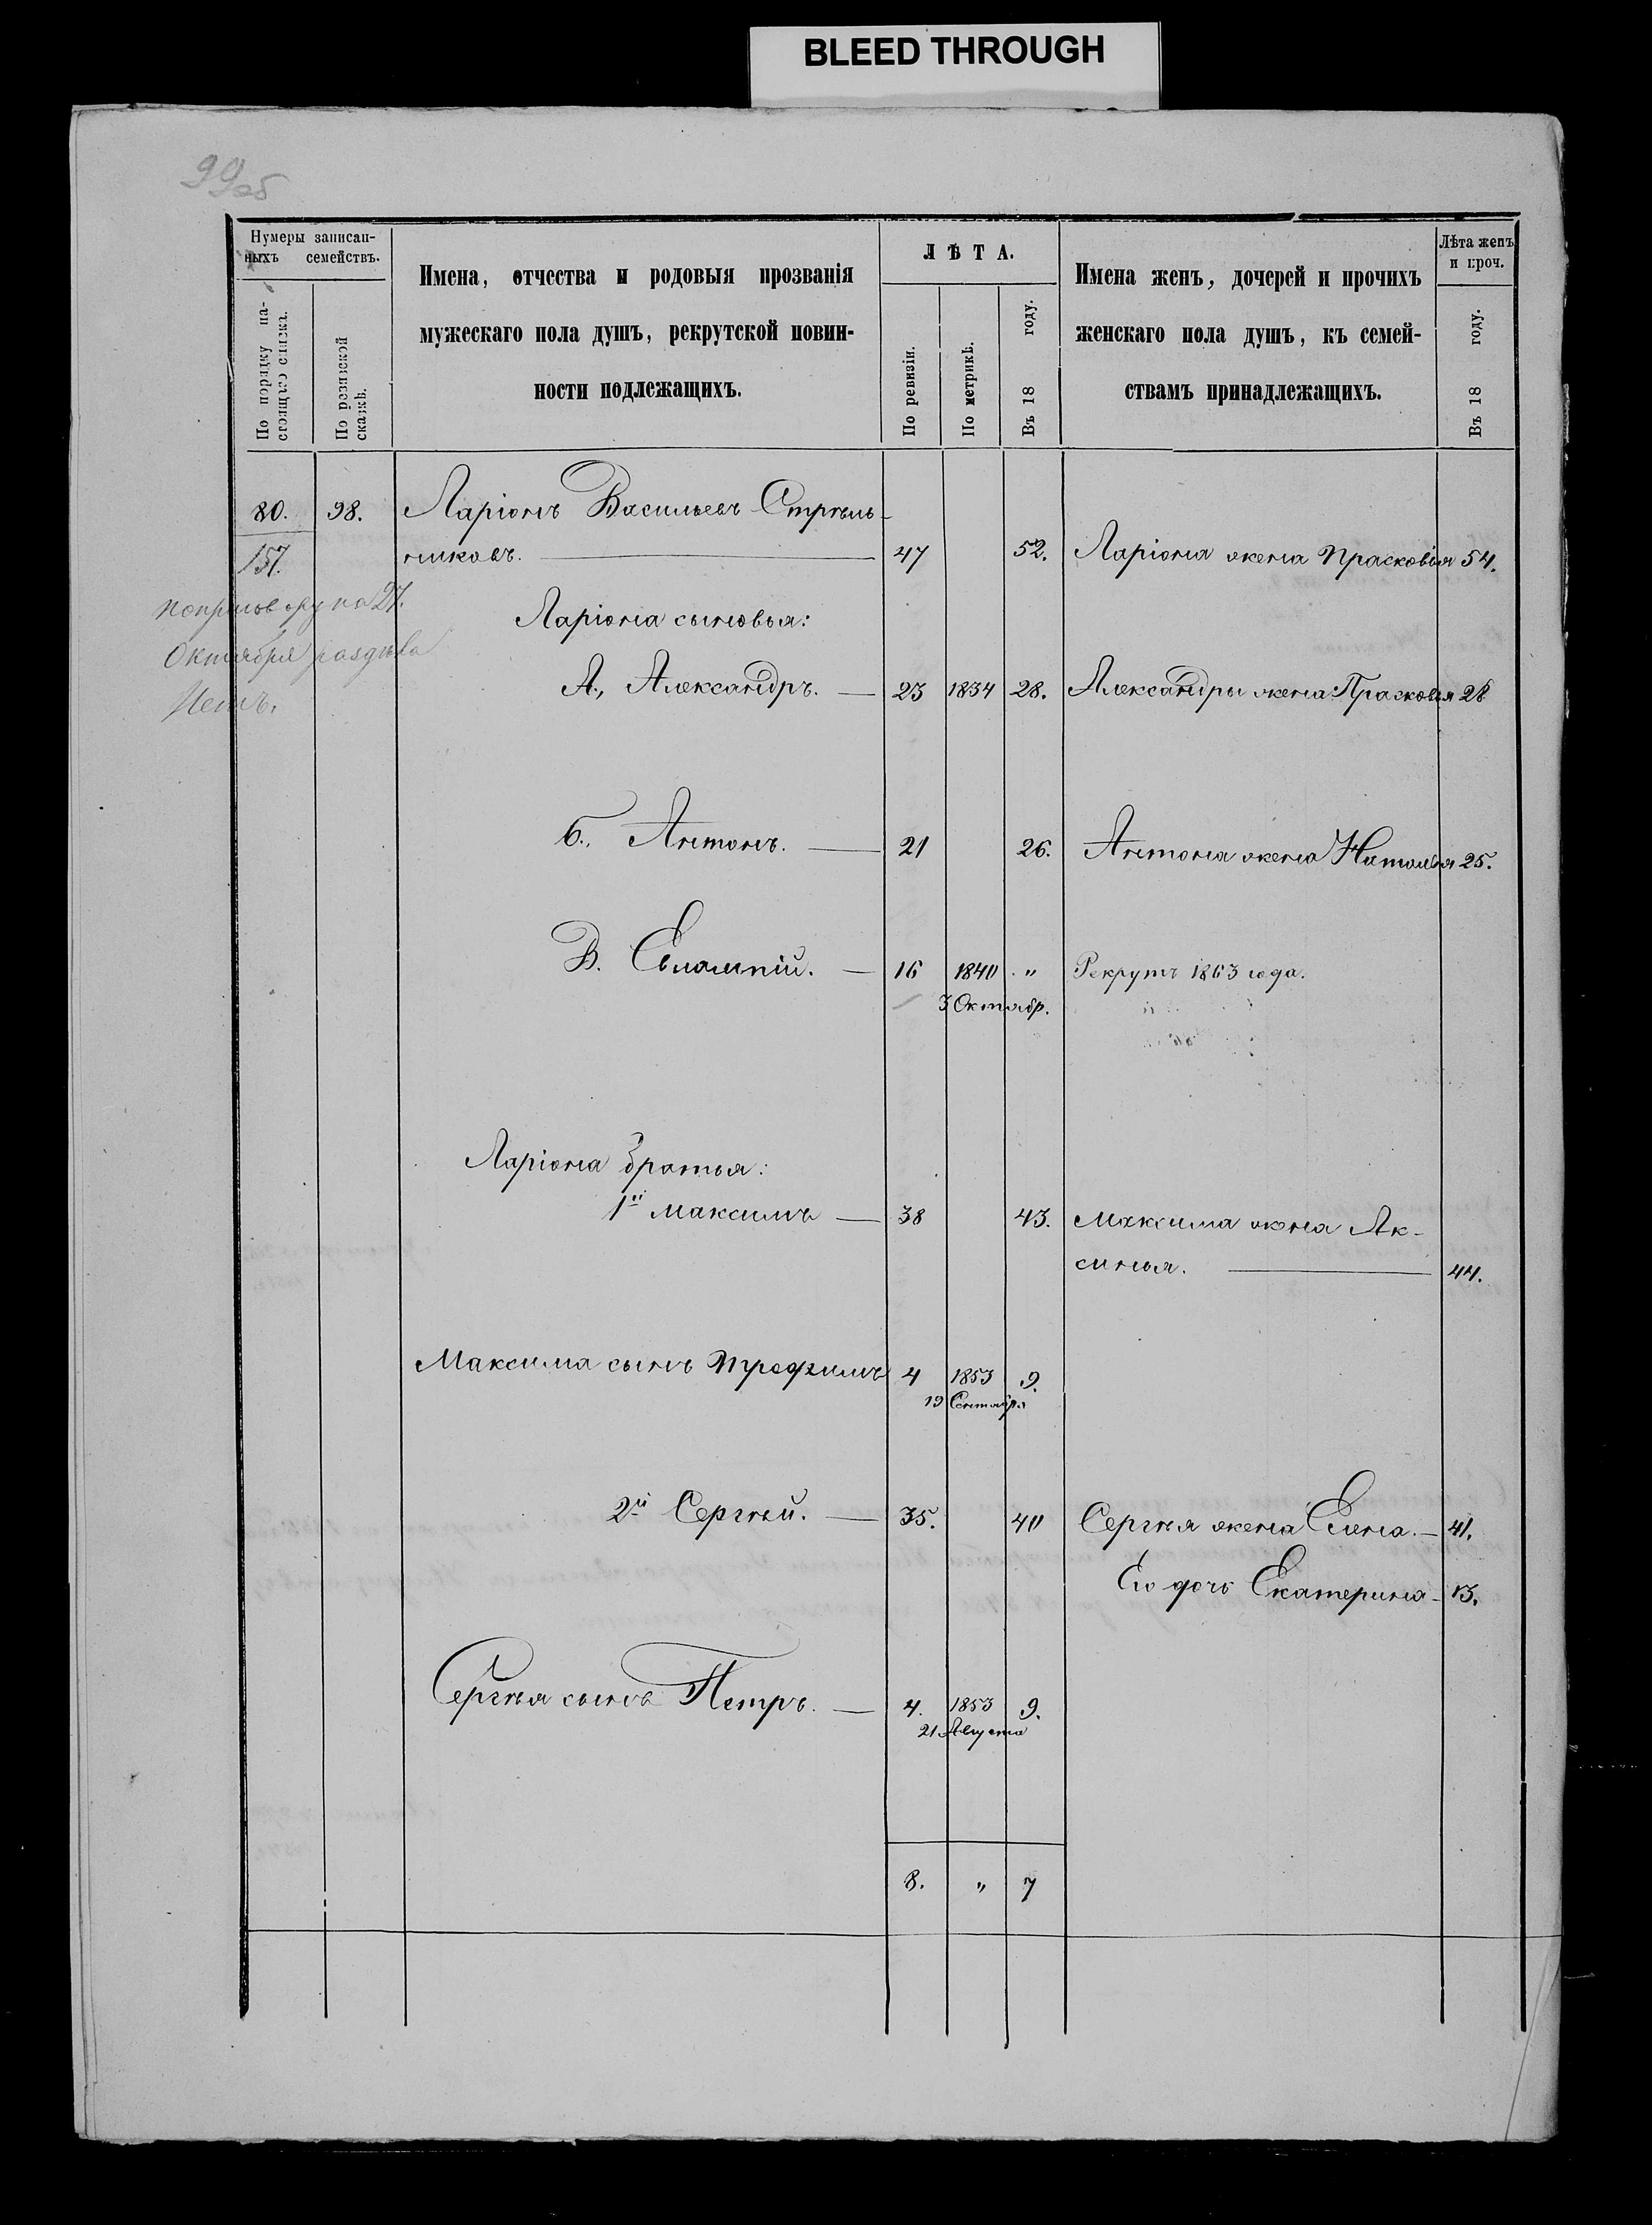 BLEED THROUGH
99об
Нумеры записан-
ныхъ семействъ.
По порядку на-
стоящаго списка.
По ревизской
сказкѣ.
Имена, отчества и родовыя прозванія
мужескаго пола душъ, рекрутской повин-
ности подлежащихъ.
ЛѢТА.
По ревизіи.
По метрикѣ.
Въ 18 году.
Имена женъ, дочерей и прочихъ
женскаго пола душъ, къ семей-
ствамъ принадлежащихъ.
Лѣта женъ
и проч.
Въ 18 году.
80. 98. Ларіонъ Васильевъ Стрѣль-
157. никовъ. 47 52. Ларіона жена Прасковія 54.
27.
Октября раздѣла
Нетъ.
Ларіона сыновья:
А., Александръ. 23 1834 28. Александры жена Прасковья 28
Б., Антонъ. 21 26. Антона жена Наталья 25.
В. Евлампій. 16 1840 " Рекрутъ 1863 года.
3 Октябр.
Ларіона братья:
1й Максимъ 38 43. Максима жена Ак-
синья. 44.
Максима сынъ Трофимъ 4 1853 9.
19 Сентября
2й Сергѣй. 35. 40 Сергѣя жена Елена. 41.
Ею дочь Екатерина 13.
Сергѣя сынъ Петръ. 4. 1853 9.
21 Августа
8. " 7